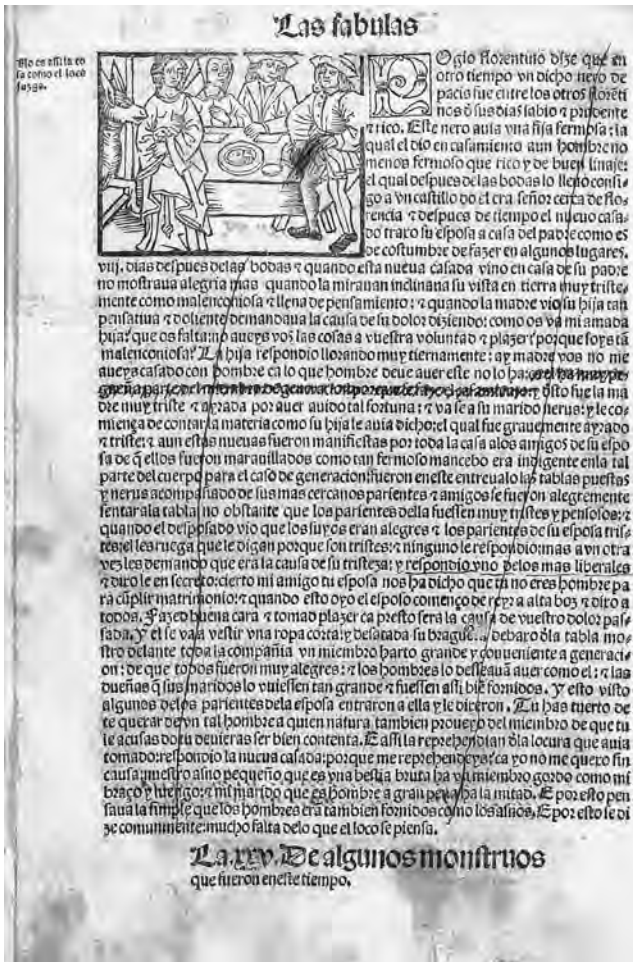 Las fabulas
No es assi la co
sa como el loco
juzga.
POgio florentino dize que en
otro tiempo vn dicho nero de
pacis fue entre los otros floreti
nos d sus dias sabio z prudente
z rico. Este nero auia vna fija fermosa: la
qual el dio en casamiento a un hombre no
menos fermoso que rico y de buen linaje:
el qual despues delas bodas lo lleuo consi
go a vn castillo do el era señor cerca de flo
rencia z despues de tiempo el nueuo casa
do traxo su esposa a casa del padre como es
de costumbre de fazer en algunos lugares.
viij. dias despues delas bodas z quando esta nueua casada vino en casa de su padre
no mostraua alegria mas quando la mirauan inclinaua su vista en tierra muy triste
mente como malenconiosa z llena de pensamiento: z quando la madre vio su hija tan
pensatiua z doliente demandaua la causa de su dolor diziendo: como os va mi amada
hija? que os falta: no aueys vos las cosas a vuestra voluntad z plazer? porque soys tā
malenconiosa? La hija respondio llorando muy tiernamente: ay madre vos no me
aueys casado con hombre ca lo que hombre deue auer este no lo ha:
y dsto fue la ma
dre muy triste z ayrada por auer auido tal fortuna: z va se a su marido nerus: y le co
miença de contar la materia como su hija le auia dicho: el qual fue grauemente ayrado
z triste: z aun estas nueuas fueron manifiestas por toda la casa alos amigos de su espo
sa de q̄ ellos fueron marauillados como tan fermoso mancebo era indigente enla tal
parte del cuerpo para el caso de generacion: fueron eneste entreualo las tablas puestas
y nerus acompañado de sus mas cercanos parientes z amigos se fueron alegremente
sentar ala tabla no obstante que los parientes della fuessen muy tristes y pensosos: z
quando el desposado vio que los suyos eran alegres z los parientes de su esposa tris
tes: el les ruega que le digan porque son tristes: z ninguno le respondio: mas a vn otra
vez les demando que era la causa de su tristeza: y respondio vno delos mas liberales
z dixo le en secreto: cierto mi amigo tu esposa nos ha dicho que tu no eres hombre pa
ra cūplir matrimonio: z quando esto oyo el esposo començo de reyr a alta boz z dixo a
todos. Fazed buena cara z tomad plazer ca presto sera la causa de vuestro dolor pas
sada. Y el se va a vestir vna ropa corta: y desatada su bragueta debaxo dla tabla mo
stro delante toda la compañia vn miembro harto grande y conueniente a generaci
on: de que todos fueron muy alegres: z los hombres lo desseauā auer como el: z las
dueñas q̄ sus maridos lo vuiessen tan grande z fuessen assi biē fornidos. Y esto visto
algunos delos parientes dela esposa entraron a ella y le dixeron. Tu has tuerto de
te quexar de vn tal hombre a quien natura tambien proueyo del miembro de que tu
le acusas do tu deuieras ser bien contenta. E assi la reprehendian dla locura que auia
tomado: respondio la nueua casada: porque me reprehendeys? ca yo no me quexo sin
causa: nuestro asno pequeño que es vna bestia bruta ha vn miembro gordo como mi
braço y luengo: z mi marido que es hombre a gran pena ha la mitad. E por esto pen
saua la simple que los hombres erā tambien fornidos como los asnos. E por esto se di
ze comunmente: mucho falta delo que el loco se piensa.
La.xxv. De algunos monstruos
que fueron eneste tiempo.